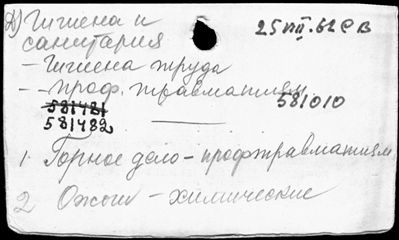 А) Гигиена и 25 VIII. 62 РВ
санитария
– Гигиена труда
– – проф. травматизм
581481 581010
581482
1. Горное дело – профтравматизм
2 Ожоги – химические